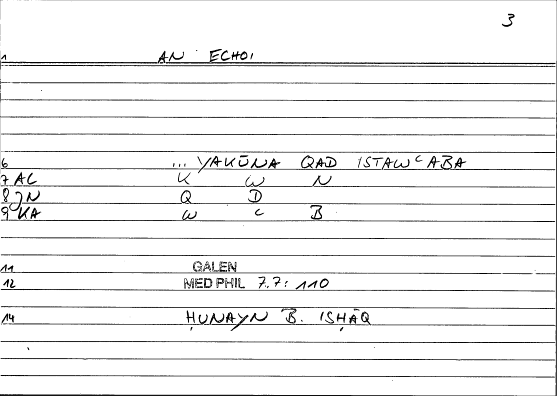 3
1 AN ECHOI
6 ... YAKŪNA QAD ISTAWᶜABA
7 AC K W N
8 JN Q D
9 KA W ᶜ B
11 GALEN
12 MED PHIL 7.7: 110
14 ḤUNAYN B. ISḤĀQ